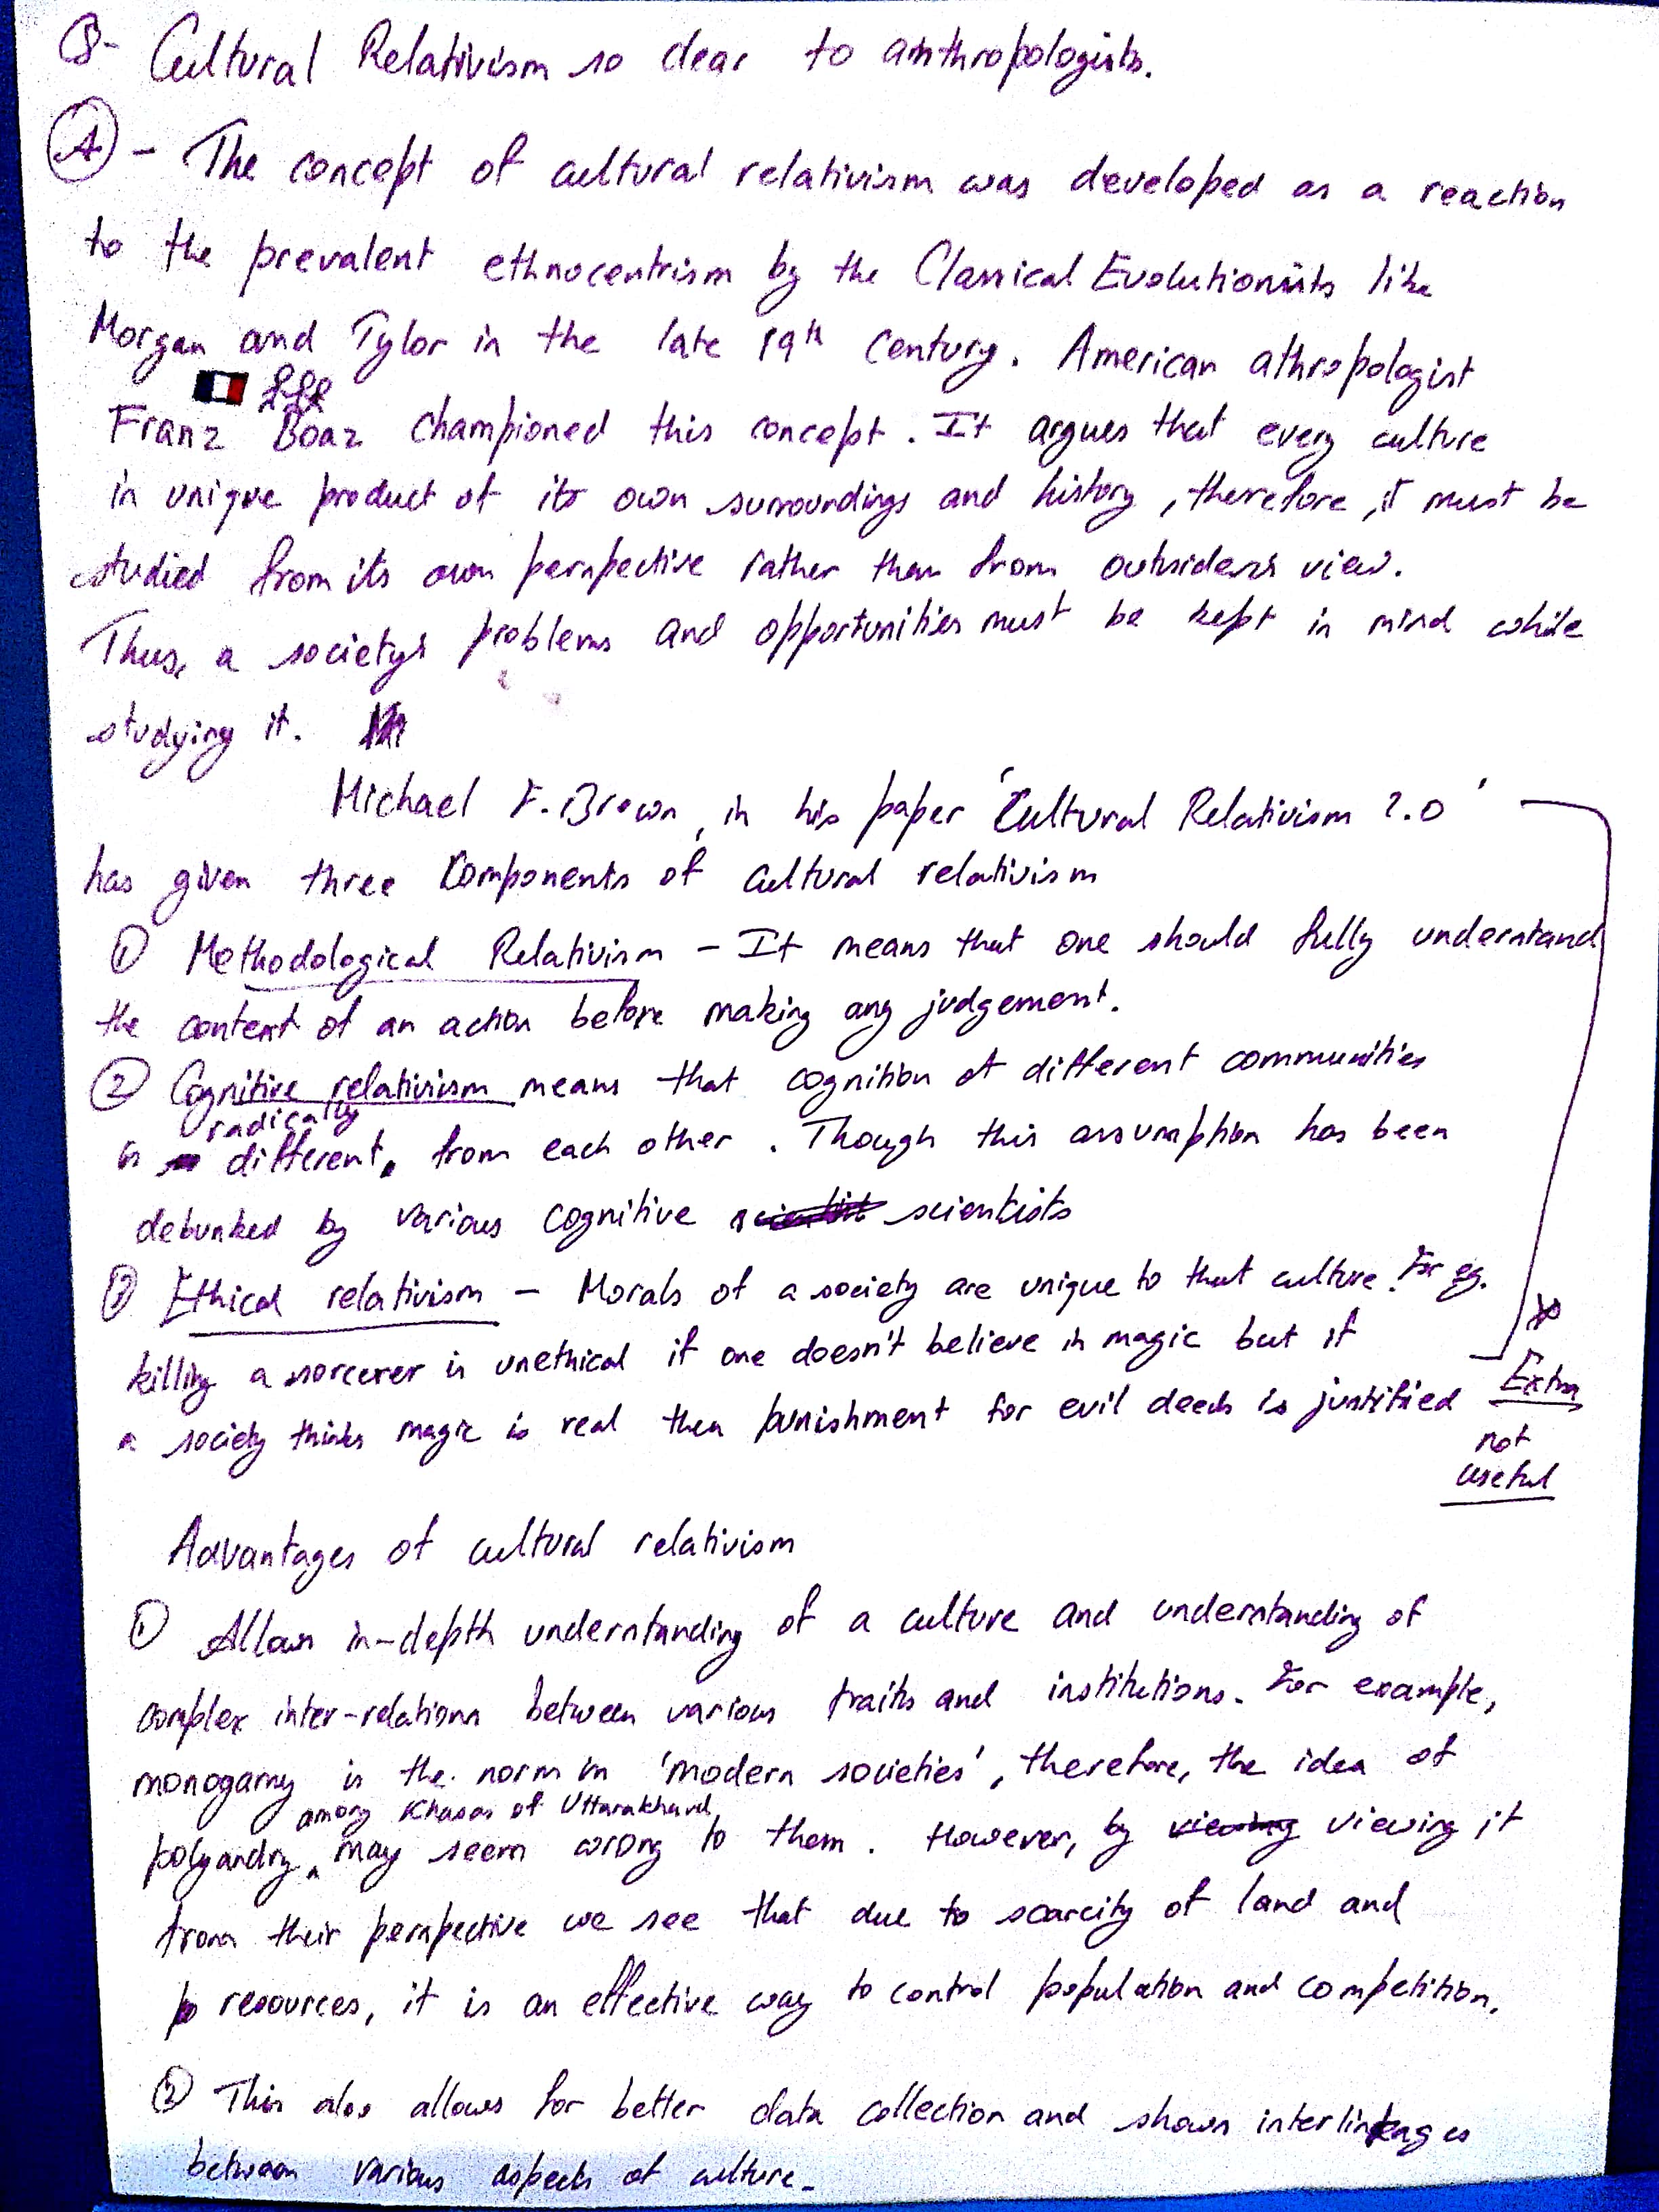 Q- Cultural Relativism so dear to anthropologists.
A - The concept of cultural relativism was developed as a reaction
to the prevalent ethnocentrism by the Classical Evolutionists like
Morgan and Tylor in the late 19th century. American athropologist
Franz Boaz championed this concept. It argues that every culture
is unique product of its own surroundings and history, therefore, it must be
studied from its own perspective rather than from outsiders view.
Thus, a society's problems and opportunities must be kept in mind while
studying it.
Michael F. Brown, in his paper 'Cultural Relativism 2.0'
has given three components of cultural relativism
① Methodological Relativism - It means that one should fully understand
the context of an action before making any judgement.
② Cognitive relativism means that cognition of different communities
is radically different, from each other. Though this assumption has been
debunked by various cognitive scientists
③ Ethical relativism - Morals of a society are unique to that culture. For eg.
killing a sorcerer is unethical if one doesn't believe in magic but if
a society thinks magic is real then punishment for evil deeds is justified
Extra
not
useful
Advantages of cultural relativism
① Allows in-depth understanding of a culture and understanding of
complex inter-relations between various traits and institutions. For example,
monogamy is the norm in 'modern societies', therefore, the idea of
polyandry among Khasas of Uttarakhand, may seem wrong to them. However, by viewing it
from their perspective we see that due to scarcity of land and
resources, it is an effective way to control population and competition.
② This also allows for better data collection and shows interlinkages
between various aspects of culture.